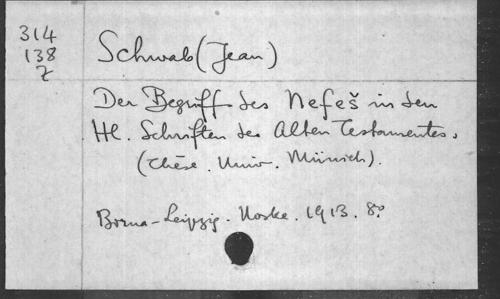 314
138
Z
Schwab (Jean)
Der Begriff des Nefeš in den
Hl. Schriften des Alten Testamentes.
(Thèse. Univ. Münich).
Borna-Leipzig. Noske. 1913. 8º